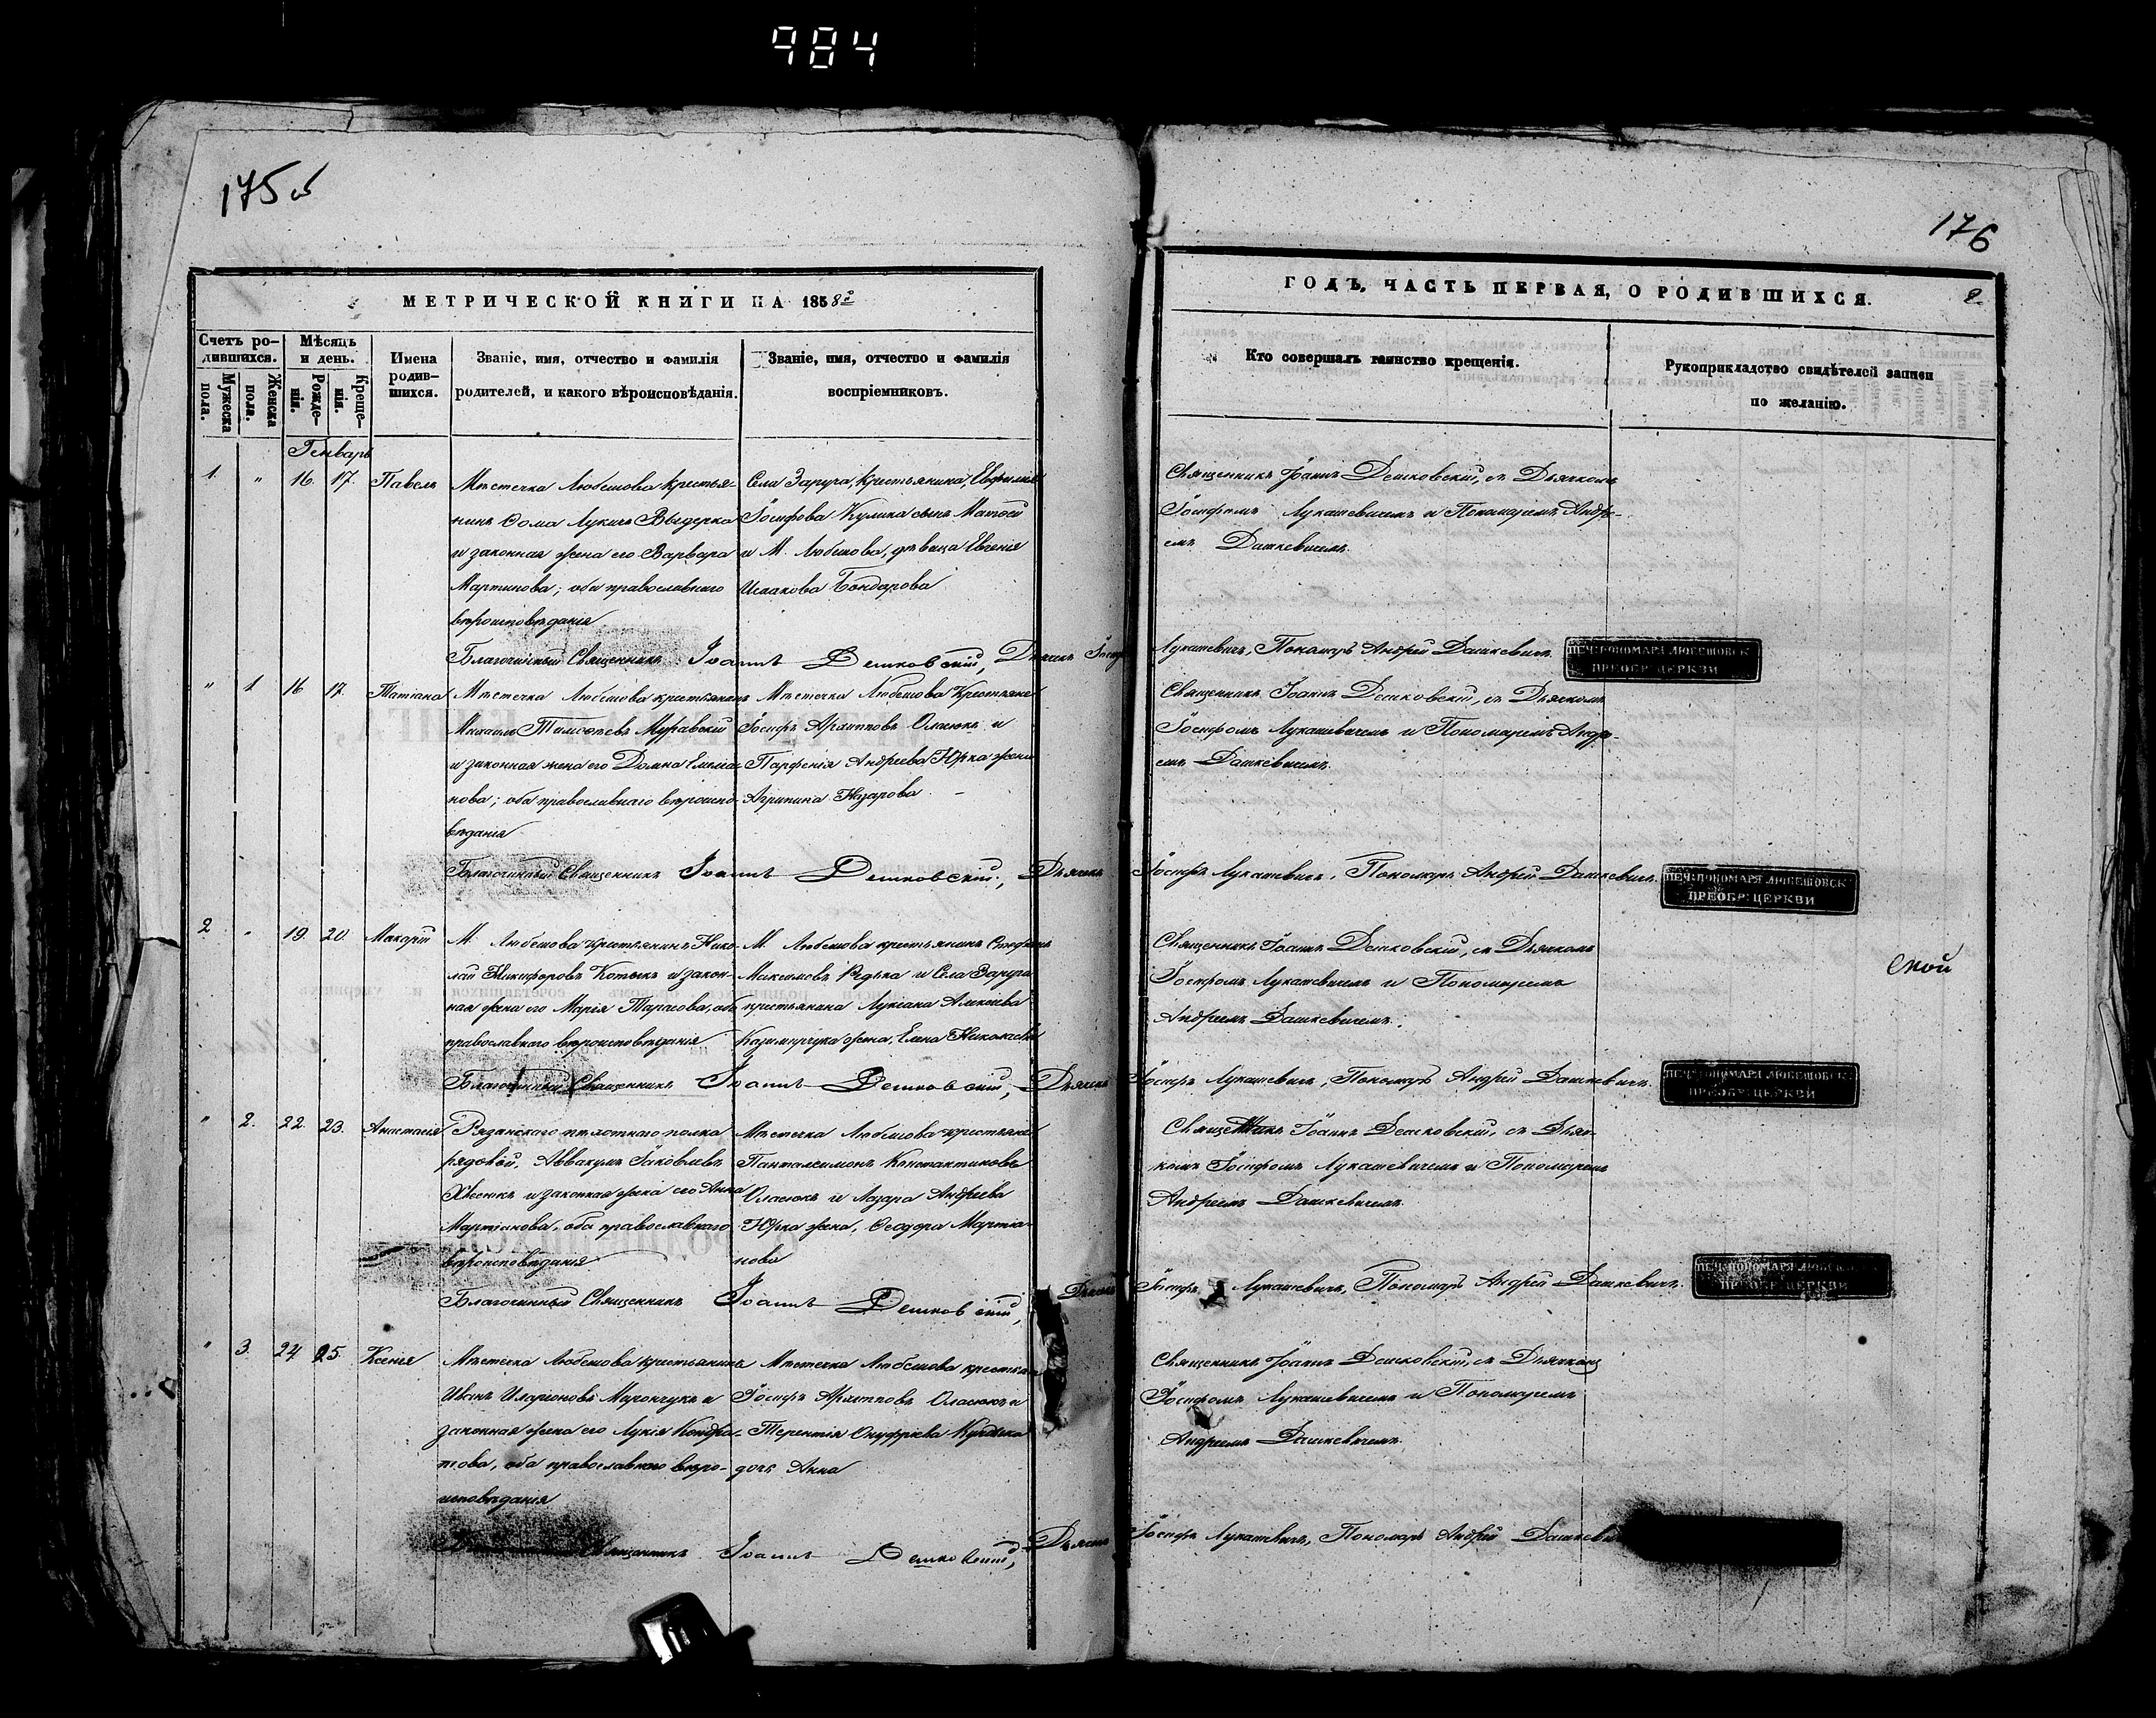 984
175 об
176
МЕТРИЧЕСКОЙ КНИГИ НА 1858й
ГОДЪ, ЧАСТЬ ПЕРВАЯ, О РОДИВШИХСЯ.
2
Счетъ ро-
дившихся.
Мужеска
пола.
Женска
пола.
Мѣсяцъ
и день.
Рожде-
нія.
Креще-
нія.
Имена
родив-
шихся.
Званіе, имя, отчество и фамилія
родителей, и какого вѣроисповѣданія.
Званіе, имя, отчество и фамилія
воспріемниковъ.
Кто совершалъ таинство крещенія.
Рукоприкладство свидѣтелей записи
по желанію.
Генварь
1. " 16. 17. Павелъ
Мѣстечка Любешова крестья-
нинъ Ѳома Лукичъ Выдерка
и законная жена его Варвара
Мартинова; оба православнаго
вѣроисповѣданія
Села Заруча, крестьянина, Евфимія
Іосифова Кулика сынъ Матѳей
и М. Любешова, дѣвица Евгенія
Исаакова Бондарова
Священникъ Іоаннъ Демковскій, съ Дьячкомъ
Іосифомъ Лукашевичемъ и Пономаремъ Андре-
емъ Дашкевичемъ.
Благочинный Священникъ Іоаннъ Демковскій, Дьячекъ Іосифъ
Лукашевичъ, Пономарь Андрей Дашкевичъ.
ПЕЧ: ПОНОМАРЯ ЛЮБЕШОВСК
ПРЕОБР: ЦЕРКВИ
" 1 16 17. Татіана
Мѣстечка Любешова крестьянинъ
Михаилъ Тимоѳеевъ Муравскій
и законная жена его Домна Емелiа-
нова; оба православнаго вѣроиспо-
вѣданія
Мѣстечка Любешова Крестьяне
Іосифъ Архиповъ Оласюкъ и
Парфенія Андреева Юрка жена
Агрипина Назарова. –
Священникъ Іоаннъ Демковскій, съ Дьячкомъ
Іосифомъ Лукашевичемъ и Пономаремъ Андре-
емъ Дашкевичемъ.
Благочинный Священникъ Іоаннъ Демковскій, Дьячекъ
Іосифъ Лукашевичъ, Пономарь Андрей Дашкевичъ.
ПЕЧ: ПОНОМАРЯ ЛЮБЕШОВСК
ПРЕОБР: ЦЕРКВИ
2 " 19. 20. Макарій
М. Любешова крестьянинъ Нико-
лай Никифоровъ Котыкъ и закон-
ная жена его Марія Тарасова, оба
православнаго вѣроисповѣданія
М. Любешова крестьянинъ Стефанъ
Максимовъ Редька и Села Заруча
крестьянина Лукіана Алексѣева
Казимирчука жена, Елена Николаева
Священникъ Іоаннъ Демковскій, съ Дьячкомъ
Іосифомъ Лукашевичемъ и Пономаремъ
Андреемъ Дашкевичемъ.
ской
Благочинный Священникъ Іоаннъ Демковскій, Дьячекъ
Іосифъ Лукашевичъ, Пономарь Андрей Дашкевичъ.
ПЕЧ: ПОНОМАРЯ ЛЮБЕШОВСК
ПРЕОБР: ЦЕРКВИ
" 2. 22. 23. Анастасія
Рязанскаго пѣхотнаго полка
рядовой, Аввакумъ Іаковлевъ
и законная жена его Анна
Мартіанова, оба православнаго
вѣроисповѣданія
Мѣстечка Любешова крестьяне
Панталеимонъ Константиновъ
Оласюкъ и Лазара Андреева
Юрка жена, Ѳеодора Мартіа-
нова
Священникъ Іоаннъ Демковскій, съ Дьяч-
комъ Іосифомъ Лукашевичемъ и Пономаремъ
Андреемъ Дашкевичемъ.
Благочинный Священникъ Іоаннъ Демковскій, Дьячекъ
Іосифъ Лукашевичъ, Пономарь Андрей Дашкевичъ.
ПЕЧ: ПОНОМАРЯ ЛЮБЕШОВСК
ПРЕОБР: ЦЕРКВИ
" 3. 24. 25. Ксенія
Мѣстечка Любешова крестьянинъ
Иванъ Иларіоновъ Мирончукъ и
законная жена его Лукія Кондра-
това, оба православнаго вѣро-
исповѣданія
Мѣстечка Любешова крестьяне
Іосифъ Архиповъ Оласюкъ и
Терентія Онуфріева
дочь Анна
Священникъ Іоаннъ Демковскій, съ Дьячкомъ
Іосифомъ Лукашевичемъ и Пономаремъ
Андреемъ Дашкевичемъ.
Священникъ Іоаннъ Демковскій, Дьячекъ
Іосифъ Лукашевичъ, Пономарь Андрей